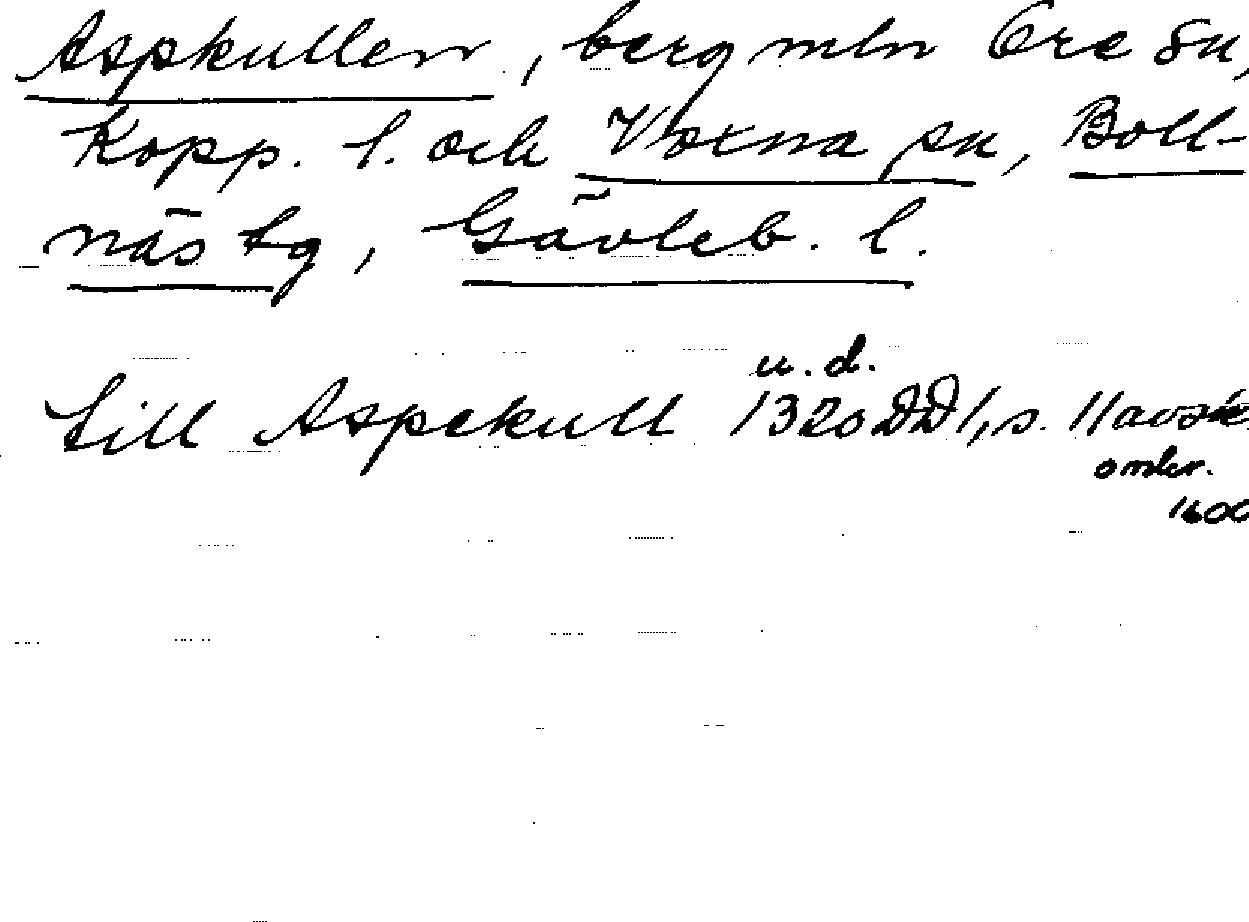 Aspkullen, berg mln Ore sn,
Kopp. l. och Voxna sn, Boll-
näs tg, Gävleb. l.
u.d.
till Aspekull 1320 DD 1, s. 11 avskr.
omkr.
1600